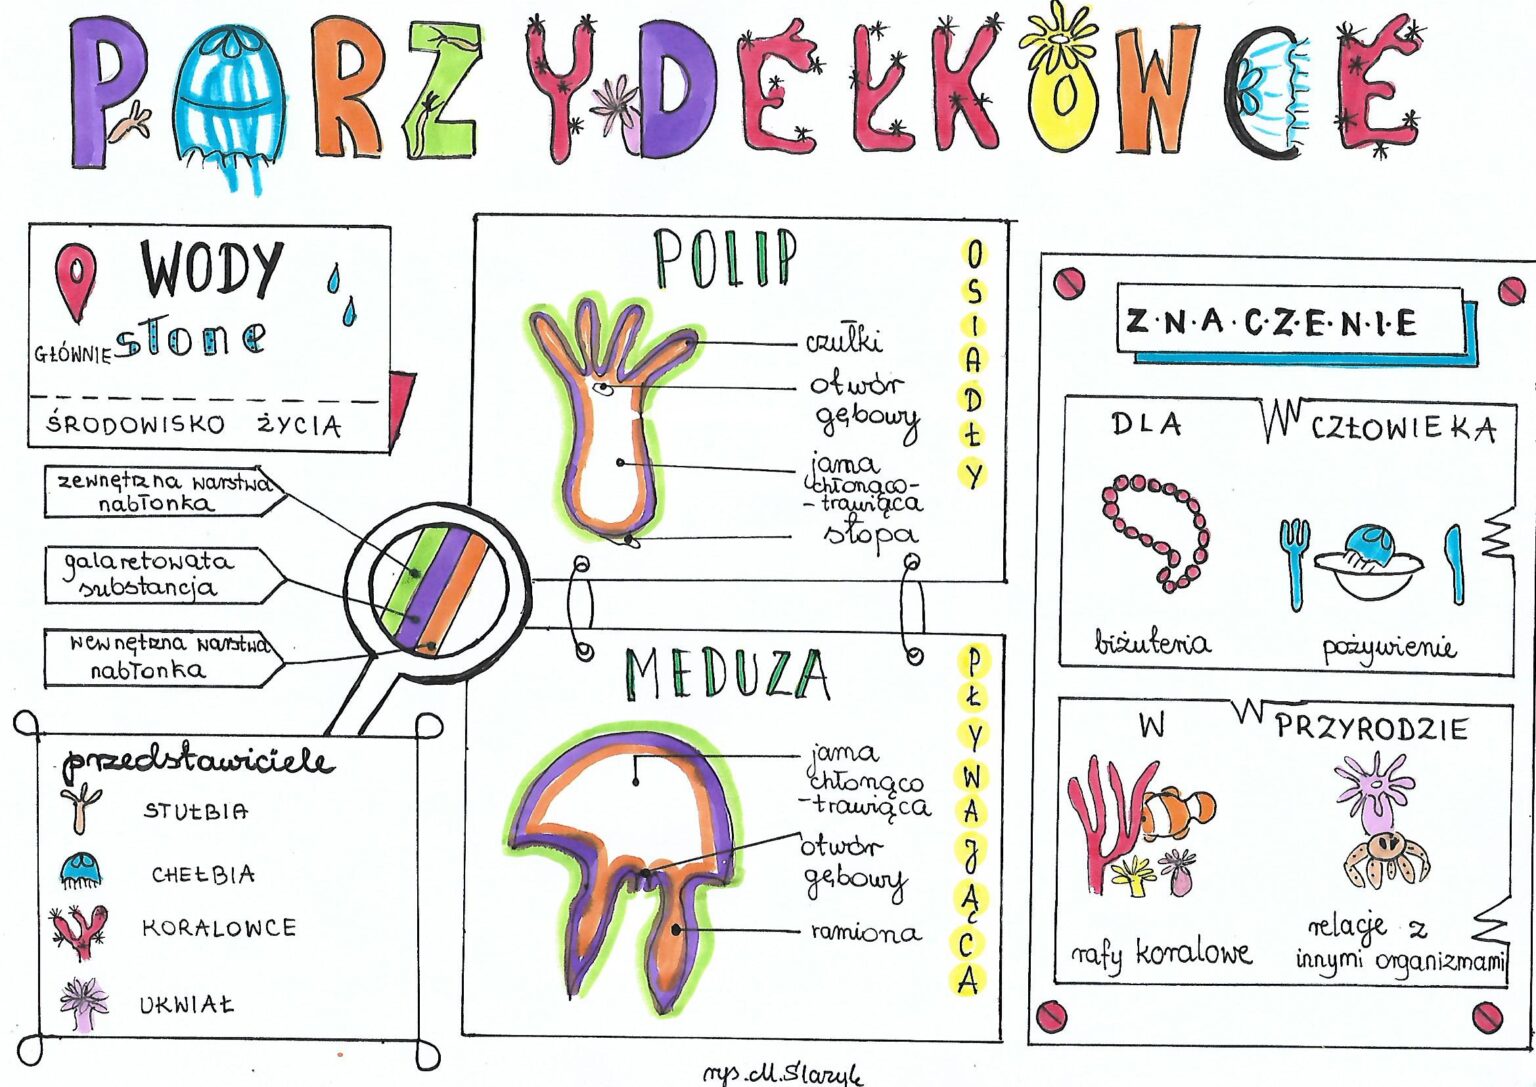 PARZYDEŁKOWCE
WODY
GŁÓWNIE słone
ŚRODOWISKO ŻYCIA
zewnętrzna warstwa
nabłonka
galaretowata
substancja
wewnętrzna warstwa
nabłonka
przedstawiciele
STUŁBIA
CHEŁBIA
KORALOWCE
UKWIAŁ
POLIP
OSIADŁY
czułki
otwór
gębowy
jama
chłonąco-
-trawiąca
stopa
MEDUZA
PŁYWAJĄCA
jama
chłonąco
-trawiąca
otwór
gębowy
ramiona
Z·N·A·C·Z·E·N·I·E
DLA CZŁOWIEKA
biżuteria
pożywienie
W PRZYRODZIE
rafy koralowe
relacje z
innymi organizmami
rys. M. Ślaryk